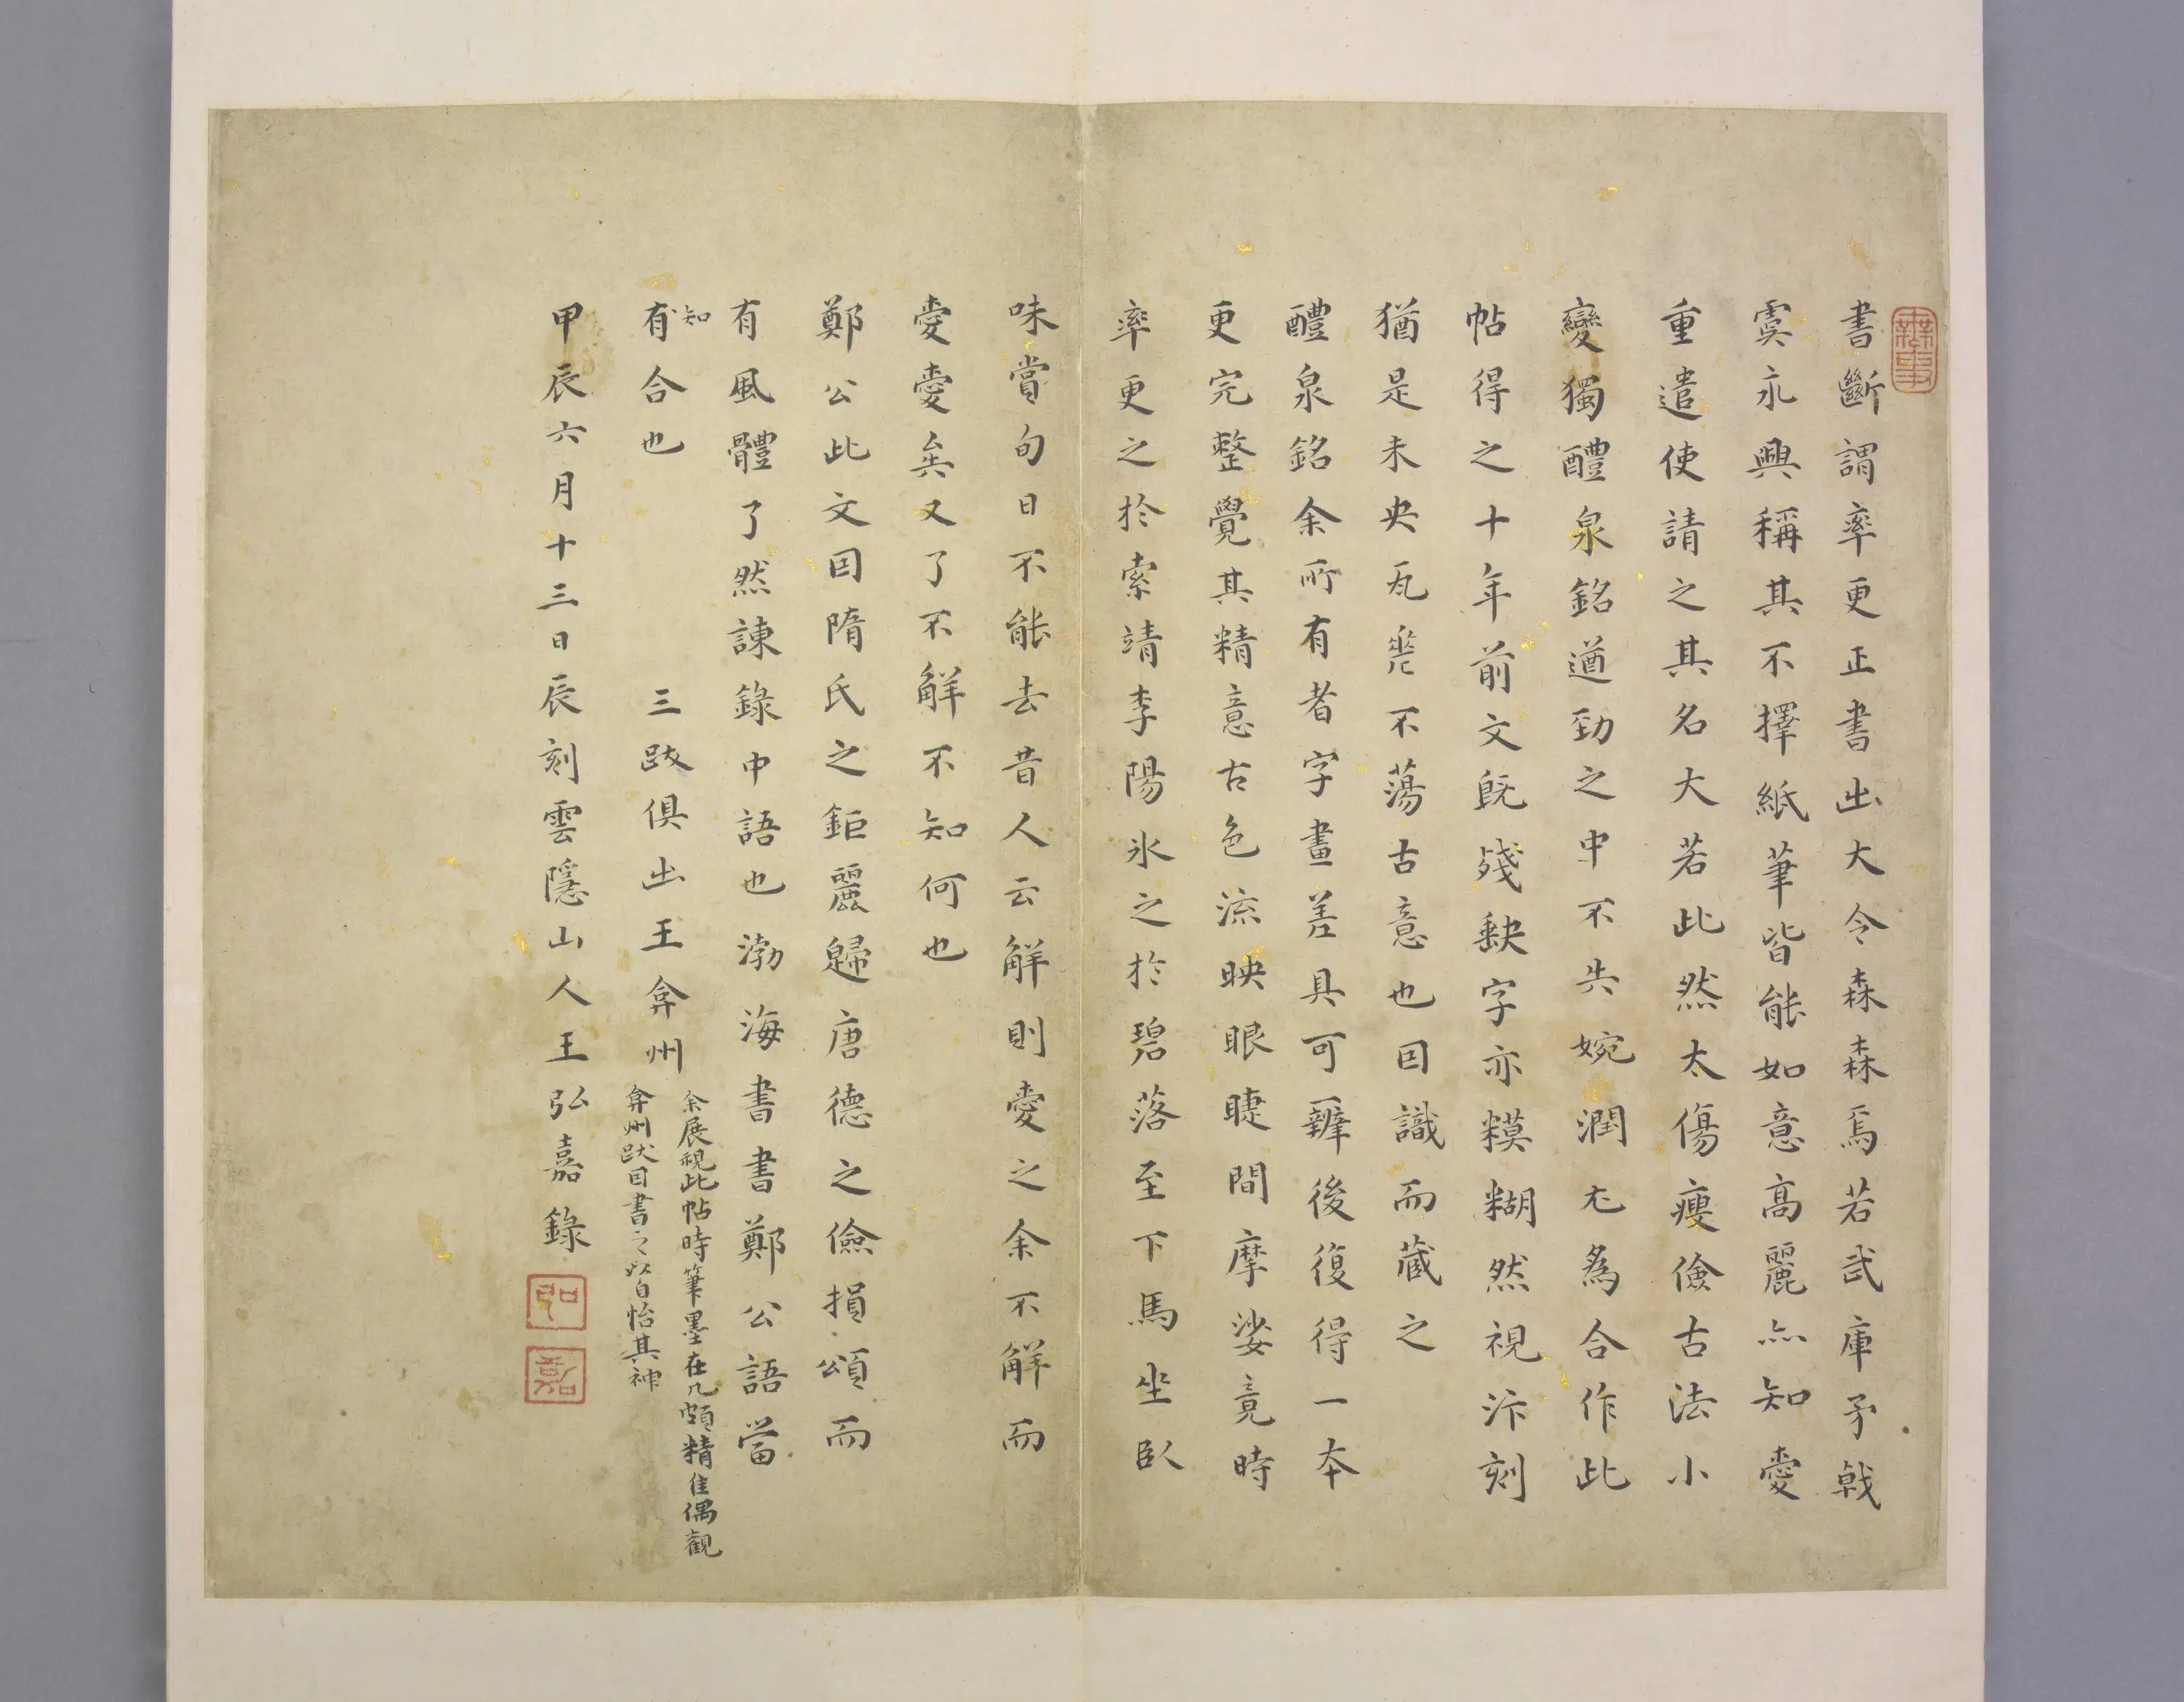 書斷謂率更正書出大令森森焉若武庫矛戟
虞永興稱其不擇紙筆皆能如意高麗亦知愛
重遣使請之其名大若此然太傷瘦儉古法小
變獨醴泉銘遒勁之中不失婉潤尤為合作此
帖得之十年前文既殘缺字亦糢糊然視汴刻
猶是未央瓦甃不蕩古意也因識而藏之
醴泉銘余所有者字畫差具可辨後復得一本
更完整覺其精意古色流映眼睫間摩娑竟時
率更之於索靖李陽氷之於碧落至下馬坐臥
味賞旬日不能去昔人云解則愛之余不解而
愛愛矣又了不解不知何也
鄭公此文因隋氏之鉅麗歸唐德之儉損頌而
有風體了然諫錄中語也渤海書書鄭公語當
知
有合也
三跋俱出王弇州
余展視此帖時筆墨在几頗精佳偶觀
弇州跋因書之以自怡其神
甲辰六月十三日辰刻雲隱山人王弘嘉錄
弘
嘉
無事